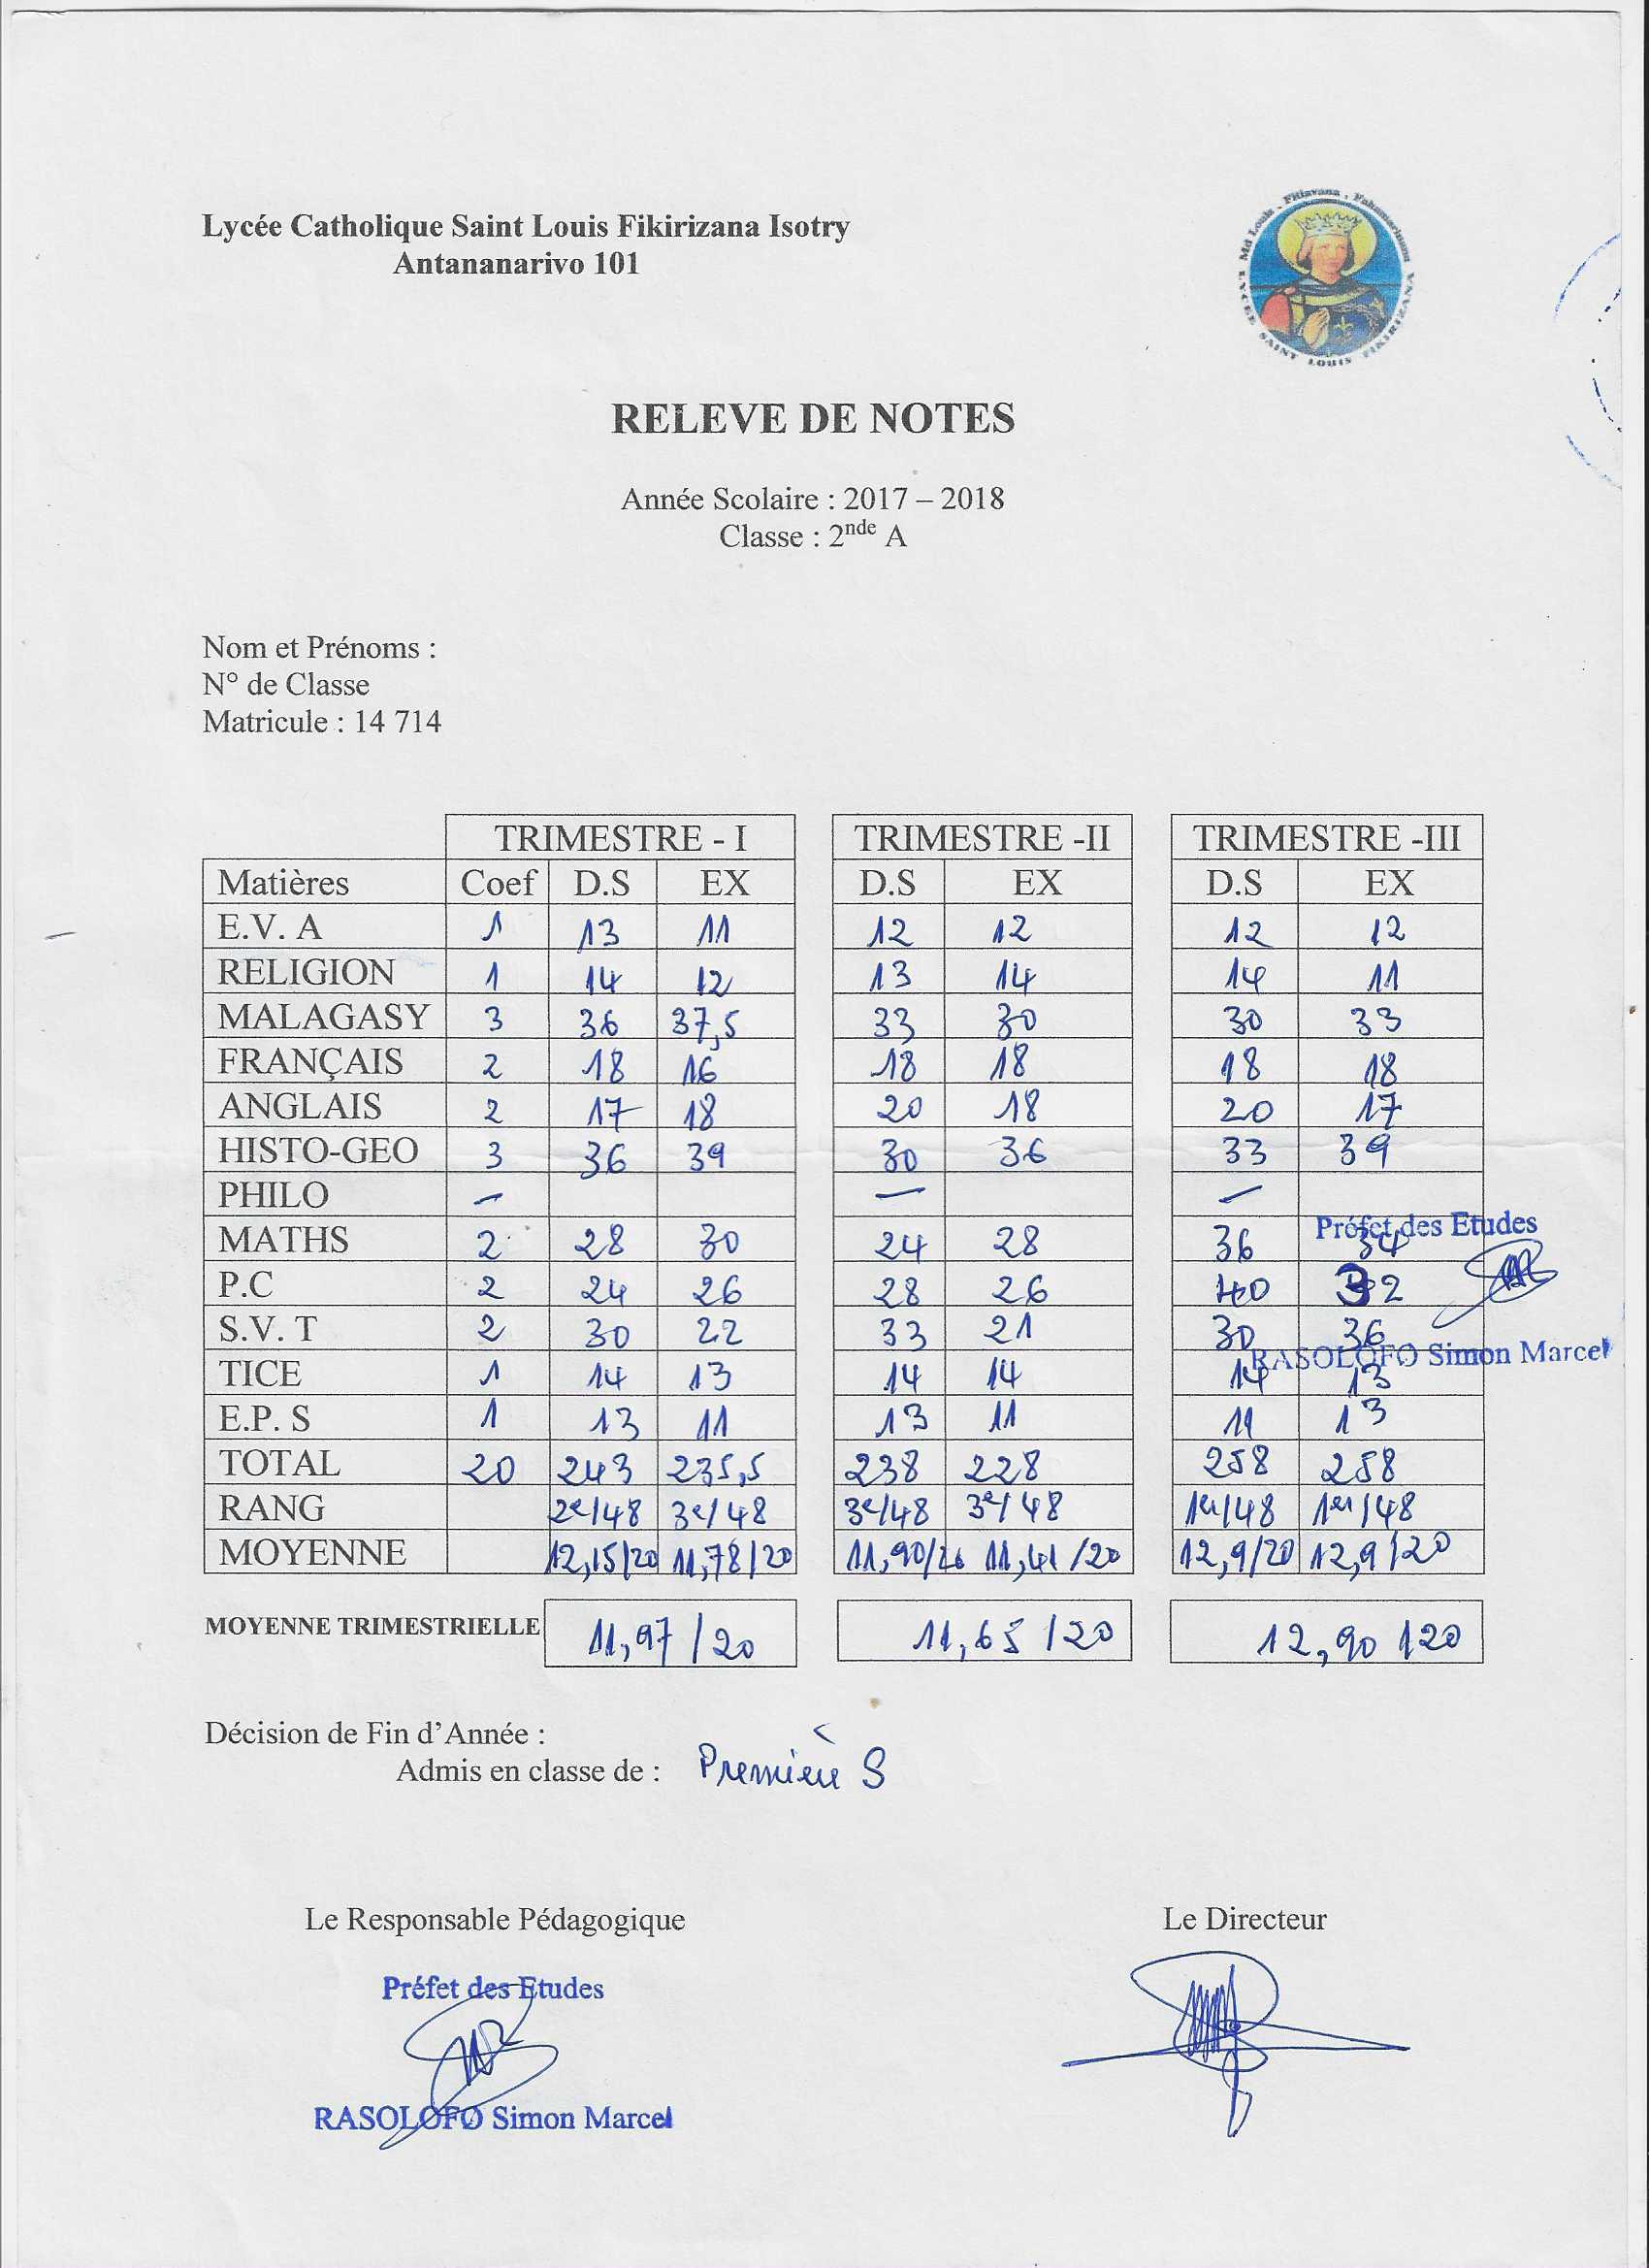 Lycée Catholique Saint Louis Fikirizana Isotry
Antananarivo 101
Md Louis . Fitiavana . Fahamarinana
LYCEE SAINT LOUIS FIKIRIZANA
RELEVE DE NOTES
Année Scolaire : 2017 – 2018
Classe : 2nde A
Nom et Prénoms :
N° de Classe
Matricule : 14 714
TRIMESTRE - I TRIMESTRE -II TRIMESTRE -III
Matières Coef D.S EX D.S EX D.S EX
E.V. A 1 13 11 12 12 12 12
RELIGION 1 14 12 13 14 14 11
MALAGASY 3 36 37,5 33 30 30 33
FRANÇAIS 2 18 16 18 18 18 18
ANGLAIS 2 17 18 20 18 20 17
HISTO-GEO 3 36 39 30 36 33 39
PHILO — — —
MATHS 2 28 30 24 28 36 34
Préfet des Etudes
P.C 2 24 26 28 26 40 32
S.V. T 2 30 22 33 21 30 36
RASOLOFO Simon Marcel
TICE 1 14 13 14 14 14 13
E.P. S 1 13 11 13 11 11 13
TOTAL 20 243 235,5 238 228 258 258
RANG 2e/48 3e/48 3e/48 3e/48 1er/48 1er/48
MOYENNE 12,15/20 11,78/20 11,90/20 11,41/20 12,9/20 12,9/20
MOYENNE TRIMESTRIELLE 11,97/20 11,65/20 12,90/20
Décision de Fin d'Année :
Admis en classe de : Première S
Le Responsable Pédagogique Le Directeur
Préfet des Etudes
RASOLOFO Simon Marcel